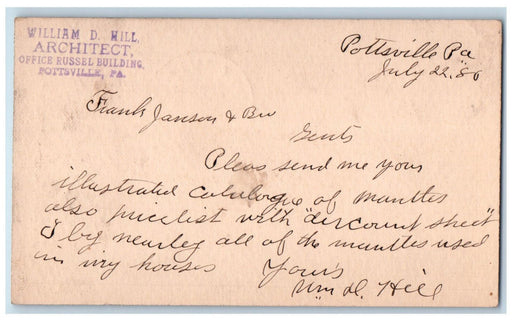 WILLIAM D. HILL,
ARCHITECT,
OFFICE RUSSEL BUILDING,
POTTSVILLE, PA.
Pottsville Pa
July 22. 86
Frank Janson & Bro
Gents
Pleas send me your
illustrated catalogue of manttes
also price list with "discount sheet"
I by nearley all of the manttes used
in my houses Yours
Wm D. Hill